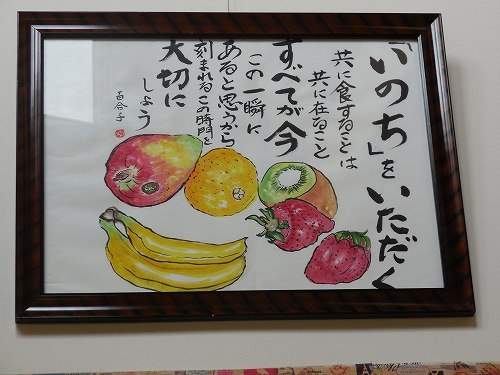 「いのち」をいただく
共に食することは
共に在ること
すべてが今
この一瞬に
あると思うから
刻まれるこの時間を
大切に
しよう
百合子